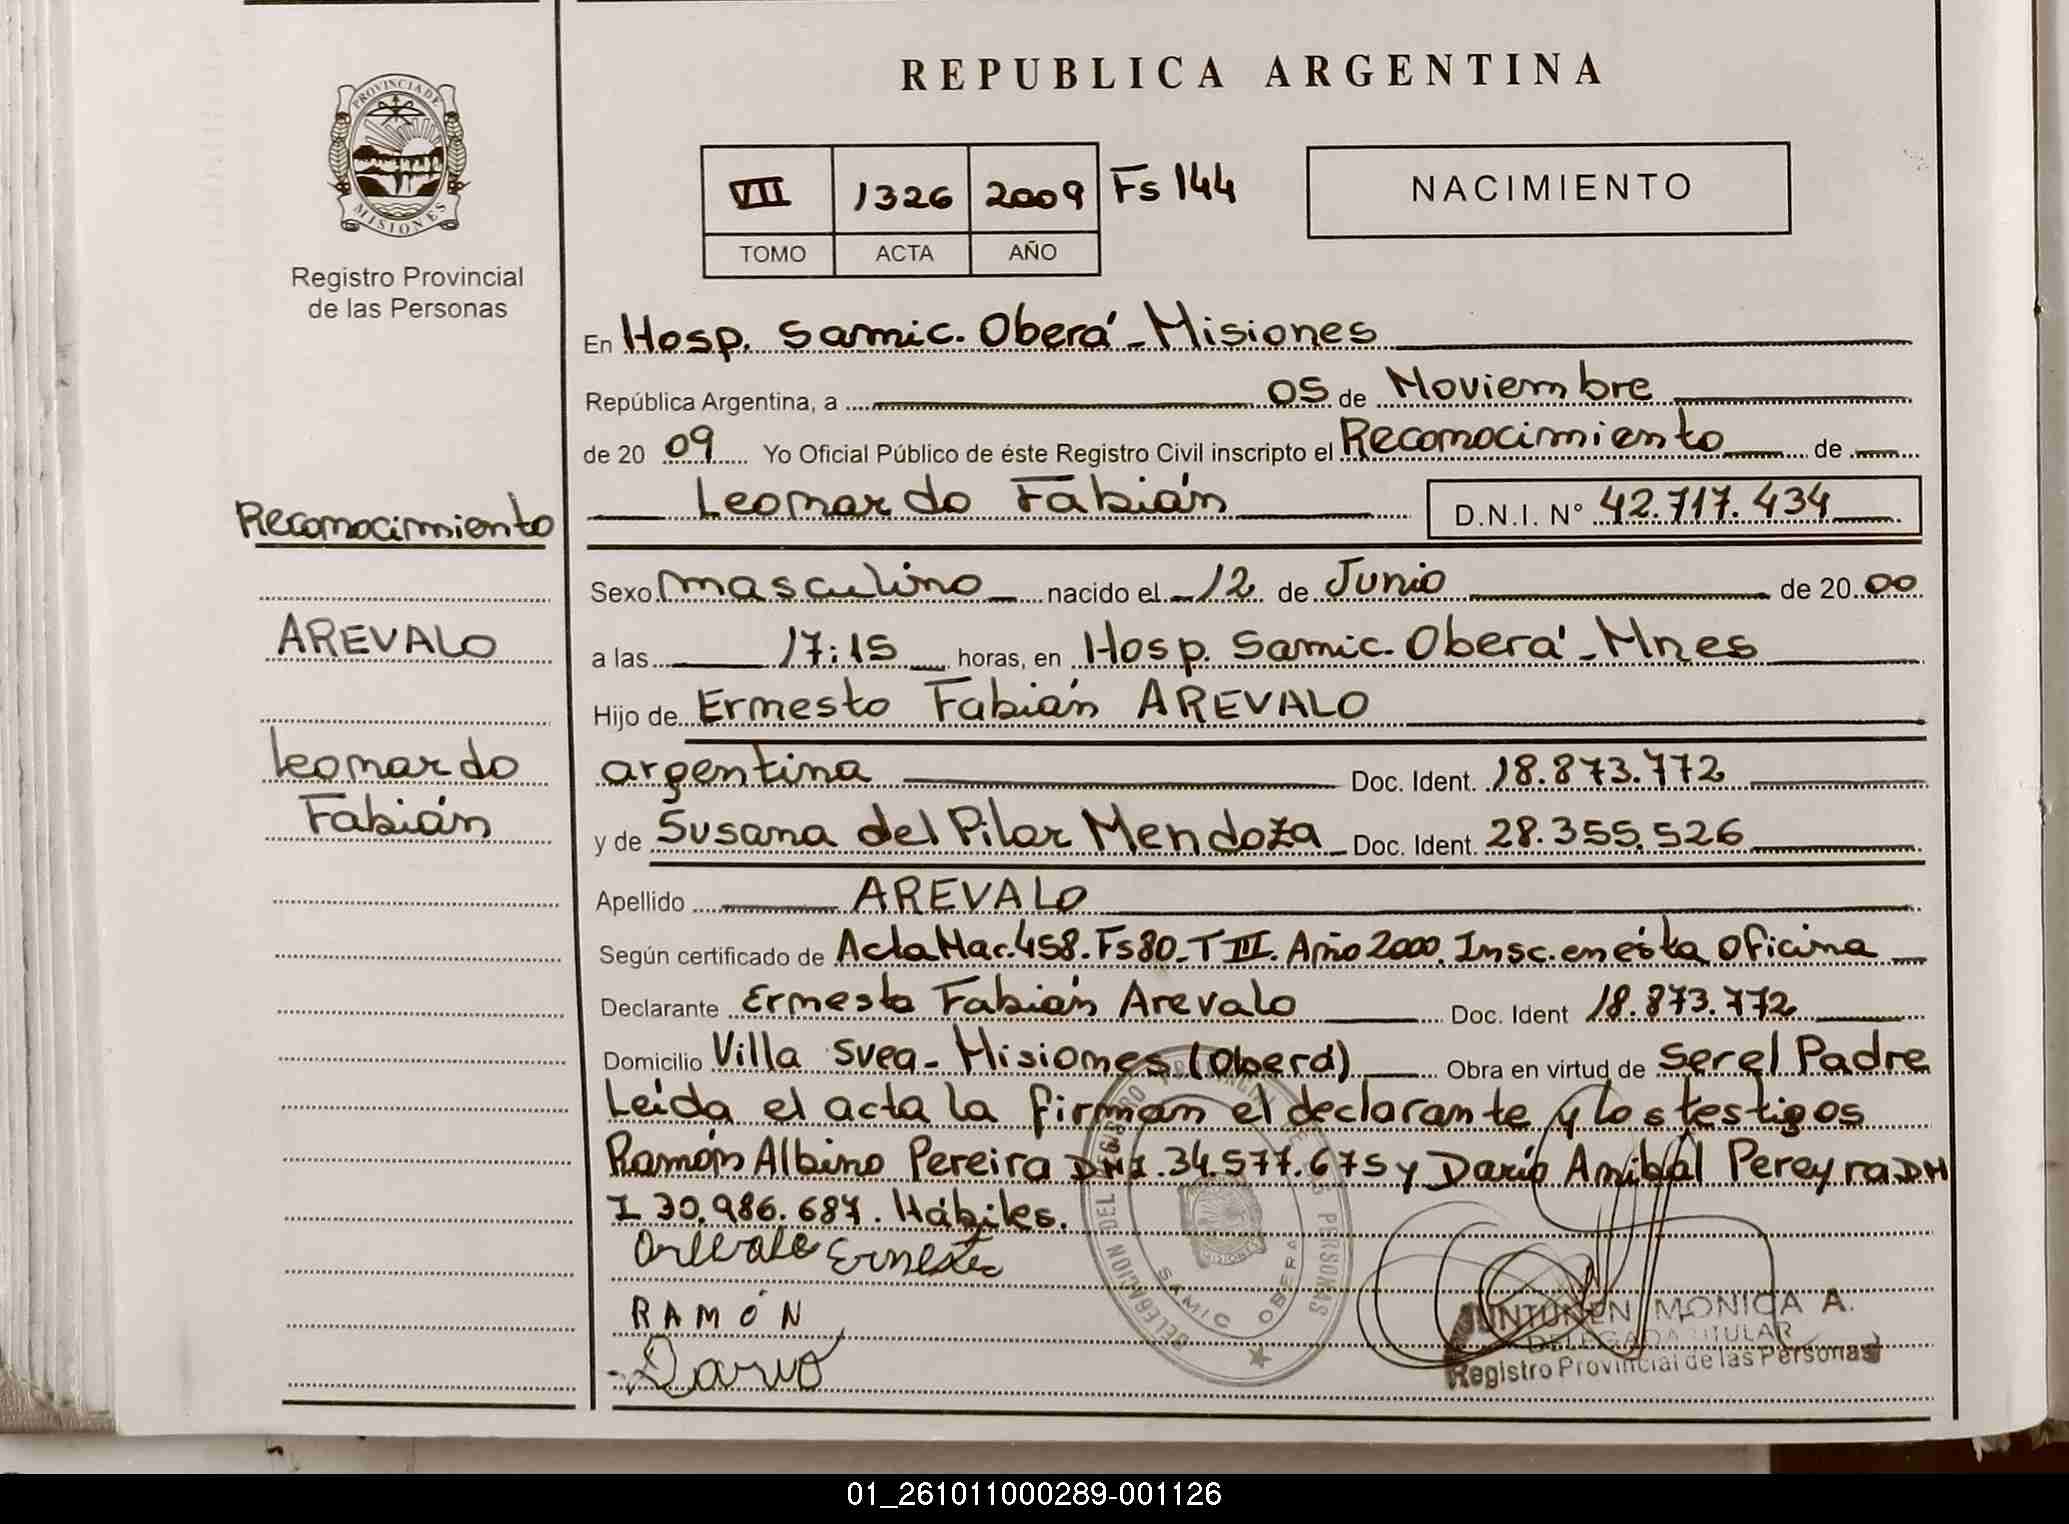 REPUBLICA ARGENTINA
PROVINCIA DE
MISIONES
Registro Provincial
de las Personas
VII 1326 2009 Fs 144
TOMO ACTA AÑO
NACIMIENTO
En Hosp. Samic. Oberá - Misiones
República Argentina, a 05 de Noviembre
de 20 09 Yo Oficial Público de éste Registro Civil inscripto el Reconocimiento de
Leonardo Fabián D.N.I. N° 42.717.434
Reconocimiento
AREVALO
Leonardo
Fabián
Sexo masculino nacido el 12 de Junio de 20 00
a las 17:15 horas, en Hosp. Samic. Oberá - Mnes
Hijo de Ernesto Fabián AREVALO
argentina Doc. Ident. 18.873.772
y de Susana del Pilar Mendoza Doc. Ident. 28.355.526
Apellido AREVALO
Según certificado de Acta Nac. 458. Fs 80 - T III. Año 2000. Insc. en ésta oficina
Declarante Ernesto Fabián Arevalo Doc. Ident 18.873.772
Domicilio Villa Svea - Misiones (Oberá) Obra en virtud de Ser el Padre
Leída el acta la firman el declarante y los testigos
Ramón Albino Pereira DNI. 34.577.675 y Darío Anibal Pereyra DN
I 30.986.687. Hábiles.
Arevalo Ernesto
RAMÓN
Dario
DELEGACION DEL REGISTRO PROVINCIAL DE LAS PERSONAS
SAMIC OBERA
MISIONES
JUNTUNEN MONICA A.
DELEGADA TITULAR
Registro Provincial de las Personas
01_261011000289-001126